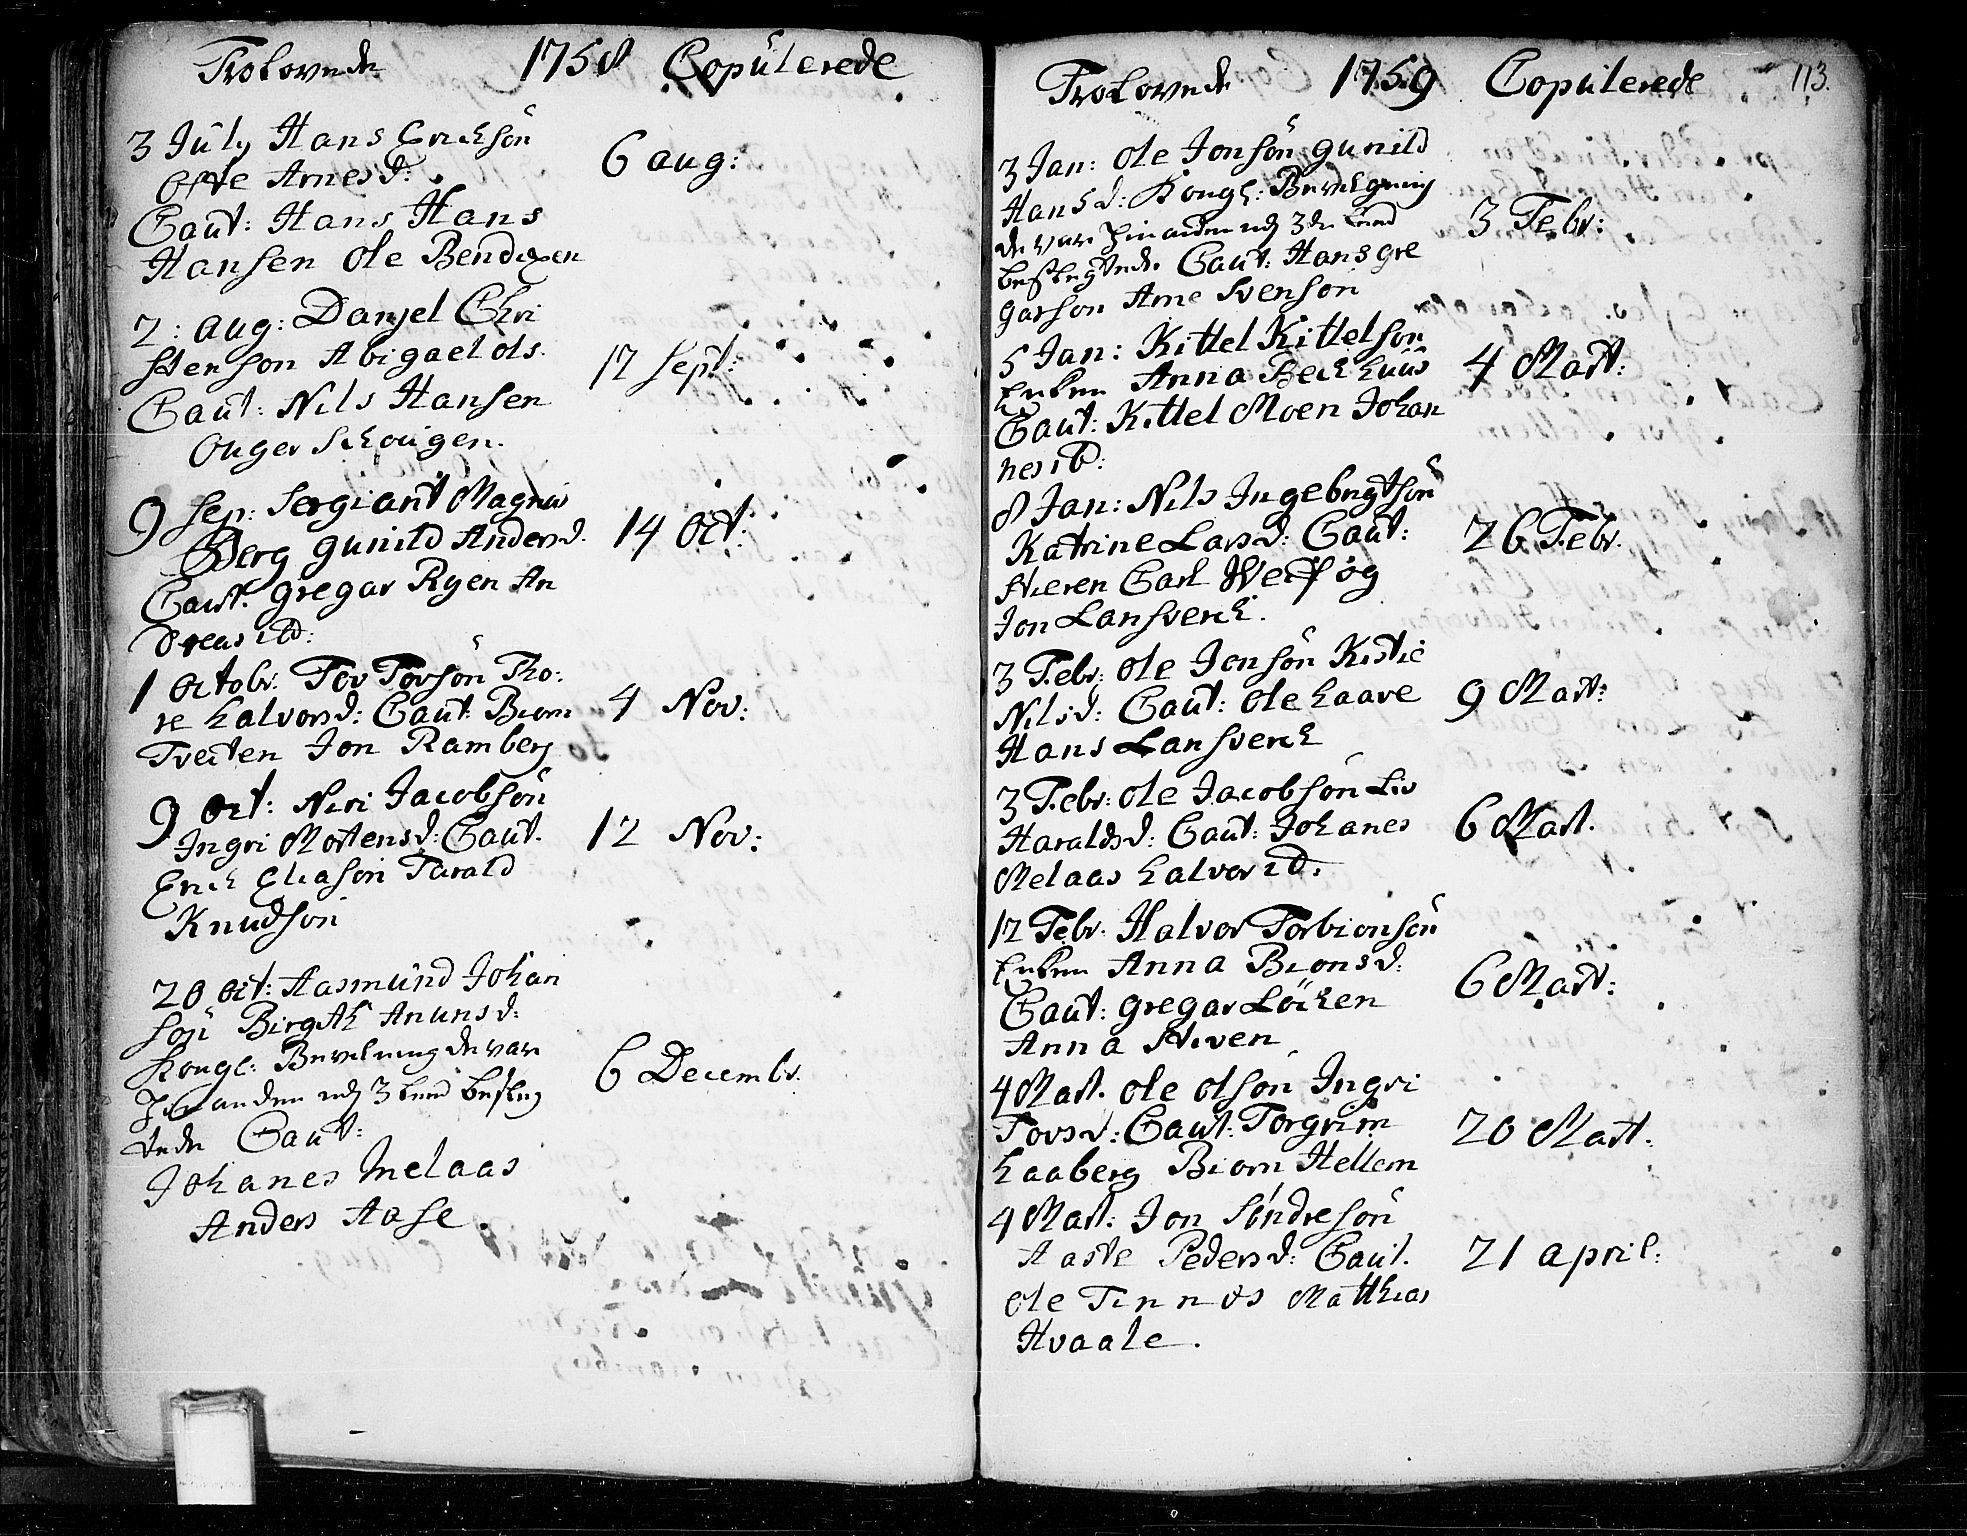 Trolovede 1758 Copulerede
3 July Hans Erichsön
Arnesd: 6 aug:
Caut: Hans Hans
Hansen Ole Bendixen
2: aug: Danjel Chri
stenson Abigael Ols. 17 Sept:
Caut: Nils Hansen
9 Sep: Sergiant Magnus
Berg gunild Andersd. 14 Oct:
Caut. gregar Ryen An
dreas ibd:
1 Octobr. Tov Tovsön Tho:
re halvorsd: Caut: Biorn 4 Nov:
Tveiten Jon Ramberg
9 Oct: Neri Jacobsön
Ingri Mortensd: Caut. 12 Nov:
Erich Eliason Tarald
Knudson
20 Oct: Aasmund Johan
son Birgith Anunsd:
Kongl: de var
hinanden udj 3 leed besleg 6 Decembr.
tede Caut:
Johanes Melaas
Anders Aase.
Trolovede 1759 Copulerede 113.
3 Jan: Ole Jonsön gunild
Hansd: Kongl: Bevilgning
de var hinanden udj 3de Leed 3 Febr:
beslegtede Caut: Hans gre
garson Arne Svenson
5 Jan: Kittel Kittelson
Enken Anna 4 Mart:
Caut: Kittel Moen Johan
nes ib:
8 Jan: Nils Ingebrigtsön
Katrine Larsd: Caut: 26 Febr.
Carl og
Jon Lansverch.
3 Febr: Ole Jonsön Kistie
Nilsd: Caut: Ole haave 9 Mart:
Hans Lansverch
3 Febr: Ole Jacobsön Liv
Haraldsd: Caut: Johanes 6 Mart.
Melaas halvor ibd.
12 Febr. Halvor Torbionsön
Enken Anna Bionsd:
Caut: gregar Löchen 6 Mart:
Anna
4 Mart. Ole Olson Ingri
Tovsd: Caut: Torgrim 20 Mart.
haaberg Biorn Hellem
4 Mart: Jon Söndresön
Aaste Pedersd: Caut. 21 april:
Ole Tinnes Matthias
Hvaale.